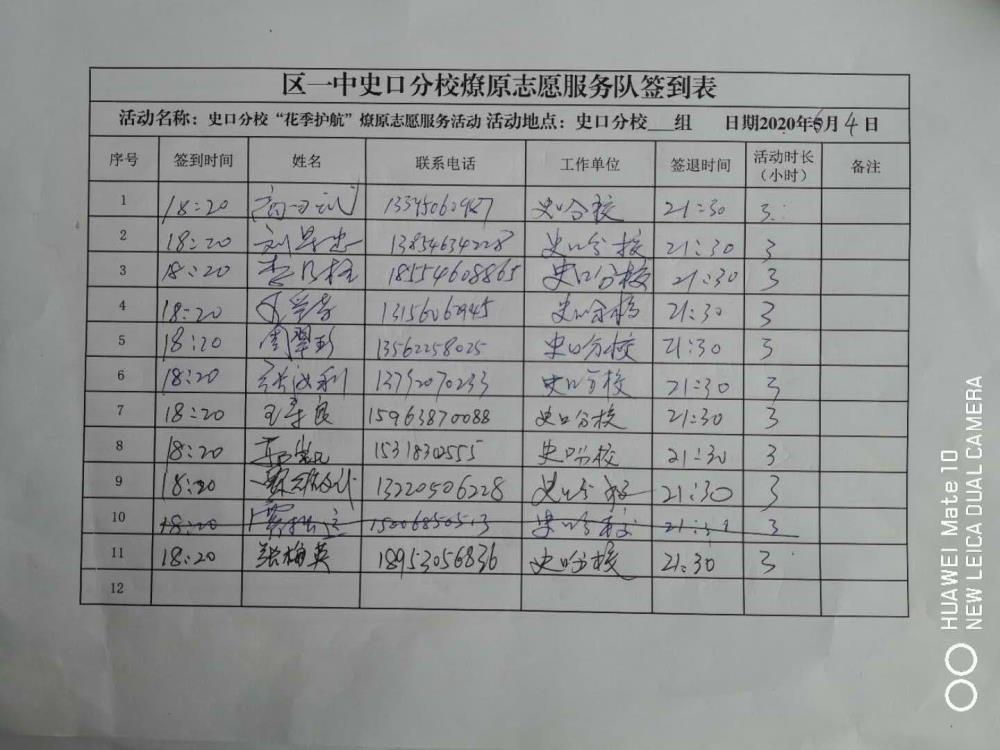 区一中史口分校燎原志愿服务队签到表
活动名称：史口分校“花季护航”燎原志愿服务活动 活动地点：史口分校___组 日期2020年6月4日
序号 签到时间 姓名 联系电话 工作单位 签退时间 活动时长（小时） 备注
1 18:20 史口分校 21:30 3
2 18:20 13854634228 史口分校 21:30 3
3 18:20 18554608865 史口分校 21:30 3
4 18:20 史口分校 21:30 3
5 18:20 周翠彩 13562258025 史口分校 21:30 3
6 18:20 史口分校 21:30 3
7 18:20 15963870088 史口分校 21:30 3
8 18:20 史口分校 21:30 3
9 18:20 13220506228 史口分校 21:30 3
10 18:20 15006850513 史口分校 3
11 18:20 张梅英 18953056836 史口分校 21:30 3
12
HUAWEI Mate 10
NEW LEICA DUAL CAMERA